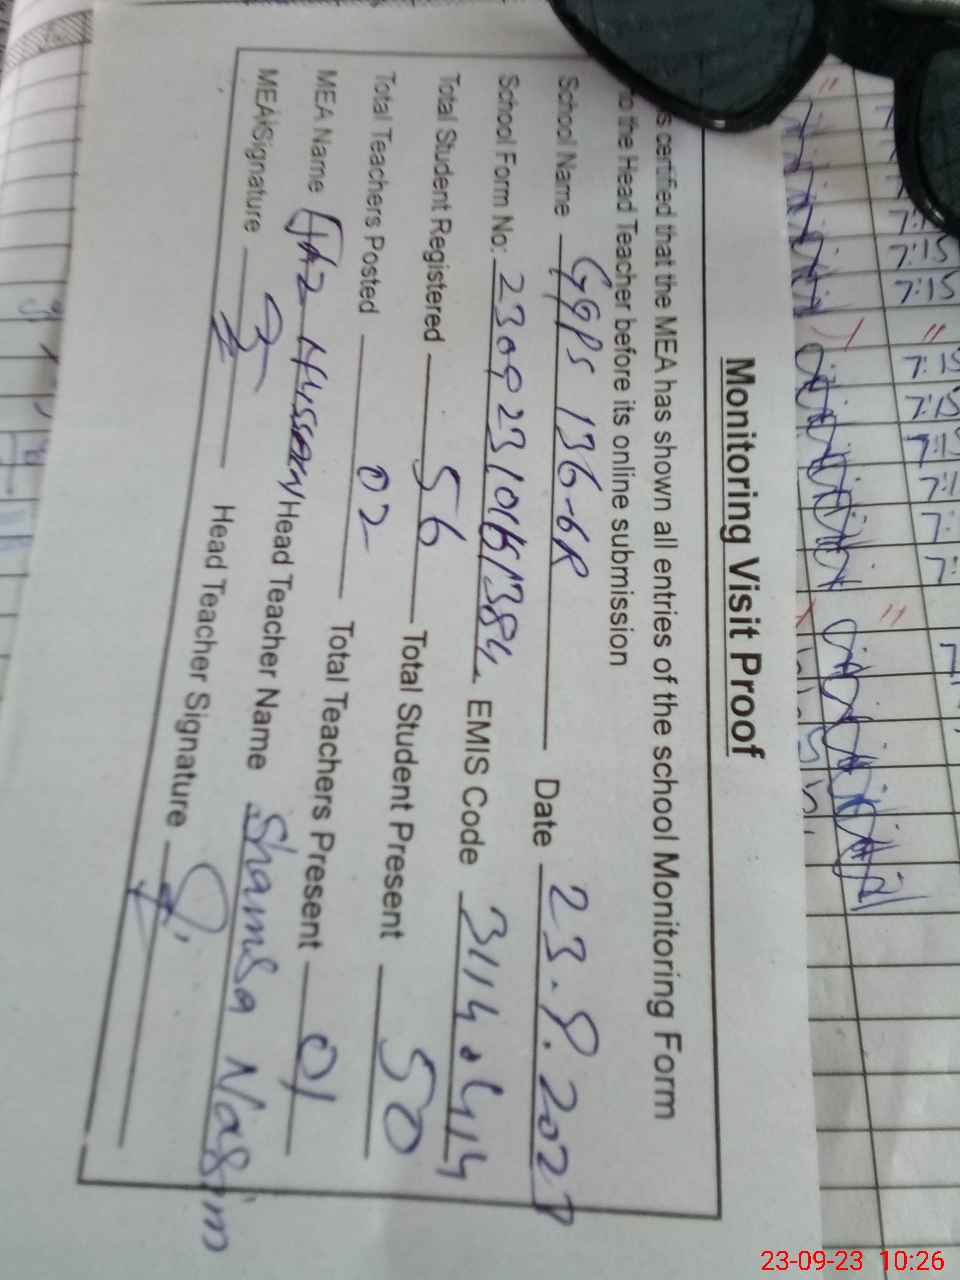 Monitoring Visit Proof
s certified that the MEA has shown all entries of the school Monitoring Form
o the Head Teacher before its online submission
School Name GGPS 136-6R Date 23.9.2023
School Form No: EMIS Code 31140414
Total Student Registered 56 Total Student Present 50
Total Teachers Posted 02 Total Teachers Present 01
MEA Name Hussain Head Teacher Name Shamsa Nasim
MEA Signature Head Teacher Signature
7:15
7:15
7:15
23-09-23 10:26